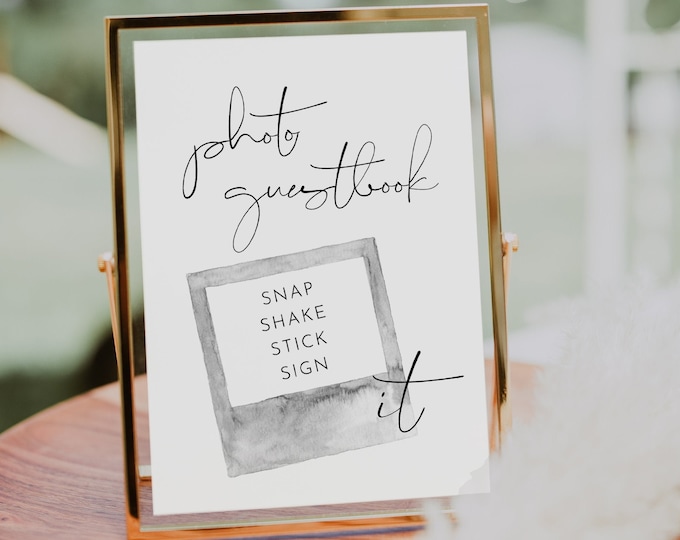 photo
guestbook
SNAP
SHAKE
STICK
SIGN
it